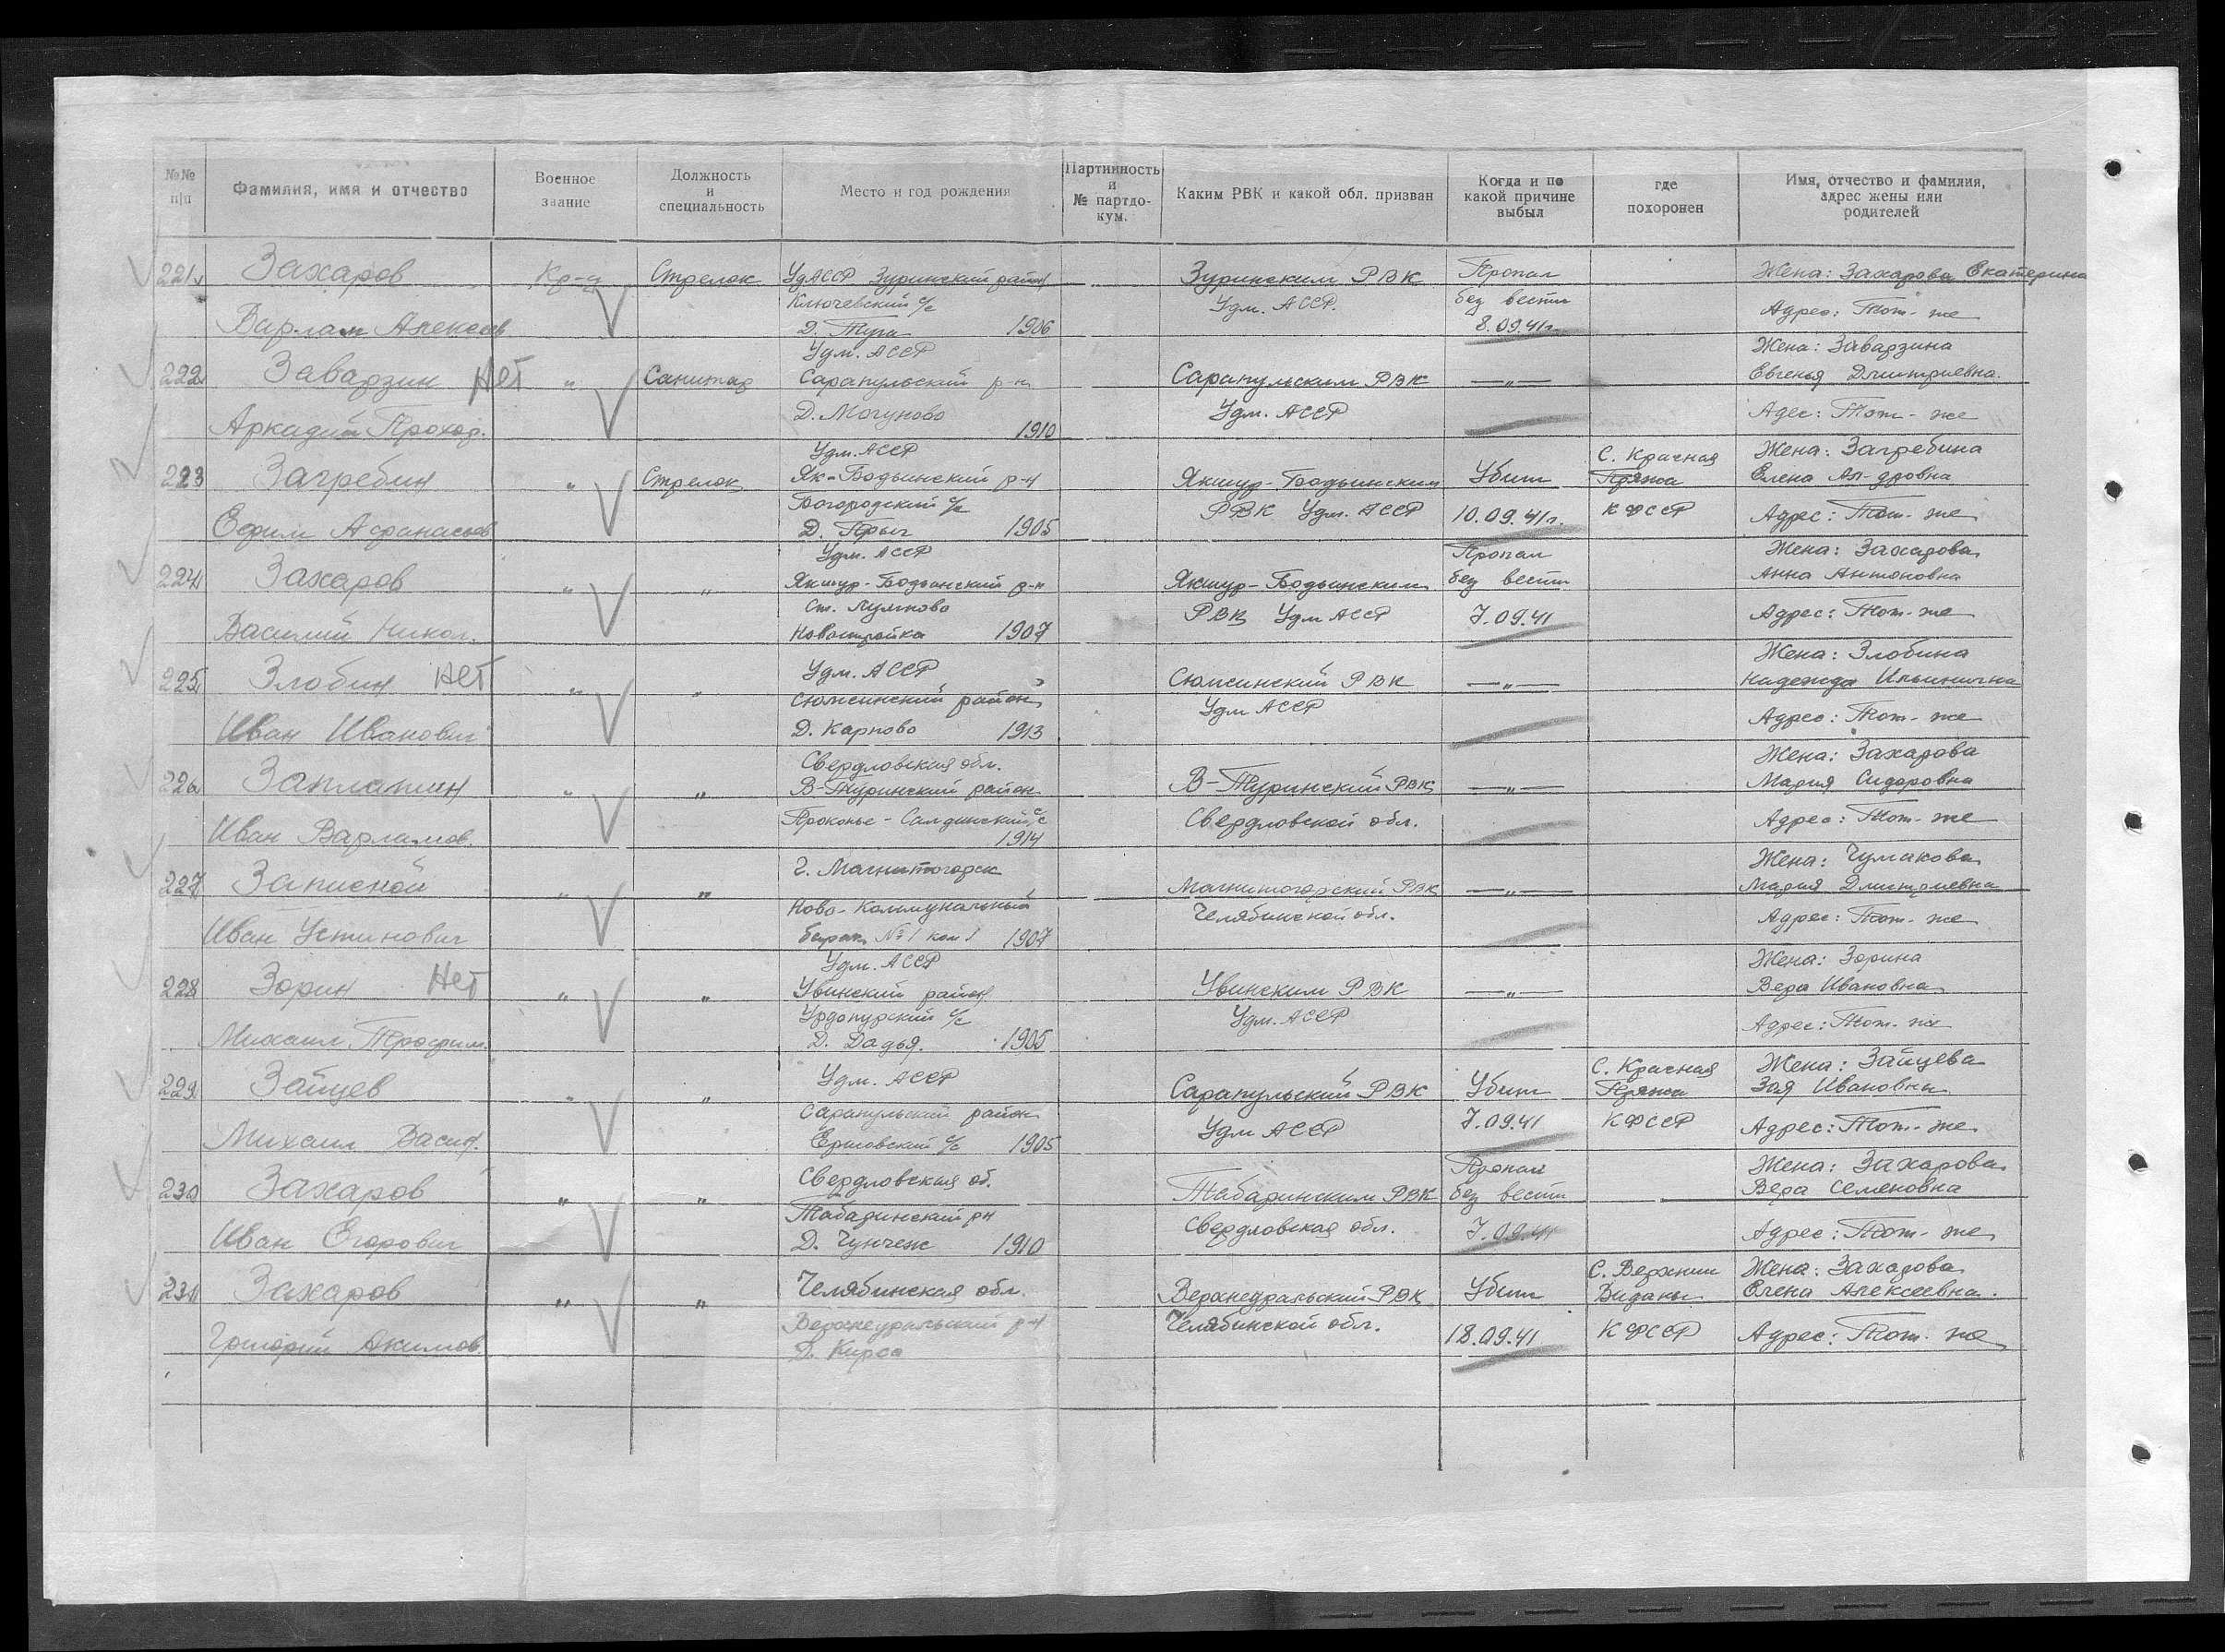 №№ п/п
Фамилия, имя и отчество
Военное звание
Должность и специальность
Место и год рождения
Партийность и № партдо-кум.
Каким РВК и какой обл. призван
Когда и по какой причине выбыл
где похоронен
Имя, отчество и фамилия, адрес жены или родителей
221 Захаров Кр-ц Стрелок УдАССР Зуринский район Зуринским РВК Пропал Жена: Захарова Екатерина
Варлам Алексеев Ключевский с/с Удм. АССР. без вести Адрес: Тот-же
Д. 1906 8.09.41г.
222 Завадзин Нет " Санитар Удм. АССР Сарапульским РВК —"— Жена: Завадзина
Сарапульский р-н Евгенья Дмитриевна.
Аркадий Прохор. Д. Могуново 1910 Удм. АССР Адес: Тот-же
223 Загребин " Стрелок Удм. АССР Якшур-Бодьинским Убит С. Красная Жена: Загребина
Як-Бодьинский р-н Пряжа Елена Ал-дровна
Ефим Афанасьев Богородский с/с РВК Удм. АССР 10.09.41г. КФССР Адрес: Тот-же
Д. 1905
224 Захаров " " Удм. АССР Якшур-Бодьинским Пропал Жена: Захарова
Якшур-Бодьинский р-н без вести Анна Антоновна
Василий Никол. Ст. Лумново РВК Удм АССР 7.09.41 Адрес: Тот-же
Новостройка 1907
225 Злобин Нет " " Удм. АССР Сюмсинский РВК —"— Жена: Злобина
Сюмсинский район Удм АССР Надежда Ильинична
Иван Иванович Д. Карпово 1913 Адрес: Тот-же
226 Заплатин " " Свердловская обл. В-Туринский РВК —"— Жена: Захарова
В-Туринский район Мария Сидоровна
Иван Варламов. Прокопье-Салдинский с/с Свердловской обл. Адрес: Тот-же
1914
227 Записной " " г. Магнитогорск Магнитогорский РВК —"— Жена: Чумакова
Ново-Коммунальный Челябинской обл. Мария Дмитриевна
Иван Устинович барак №1 ком 1 1907 Адрес: Тот-же
228 Зорин Нет " " Удм. АССР Увинским РВК —"— Жена: Зорина
Увинский район Вера Ивановна
Михаил Трофим. Удм. АССР Адрес: Тот-же
Д. Дадья. 1905
229 Зайцев " " Удм. АССР Сарапульский РВК Убит С. Красная Жена: Зайцева
Сарапульский район Пряжа Зоя Ивановны
Михаил Васил. Ершовский с/с 1905 Удм АССР 7.09.41 КФССР Адрес: Тот-же
230 Захаров " " Свердловская об. Табаринским РВК Пропал Жена: Захарова
Табаринский р-н без вести Вера Семеновна
Иван Егорович Д. 1910 Свердловская обл. 7.09.41 Адрес: Тот-же
231 Захаров " " Челябинская обл. Верхнеуральский РВК Убит С. Верхнии Жена: Захарова
Верхнеуральский р-н Челябинской обл. Виданы Елена Алексеевна.
Григорий Акимов. Д. Кирса 18.09.41 КФССР Адрес: Тот-же